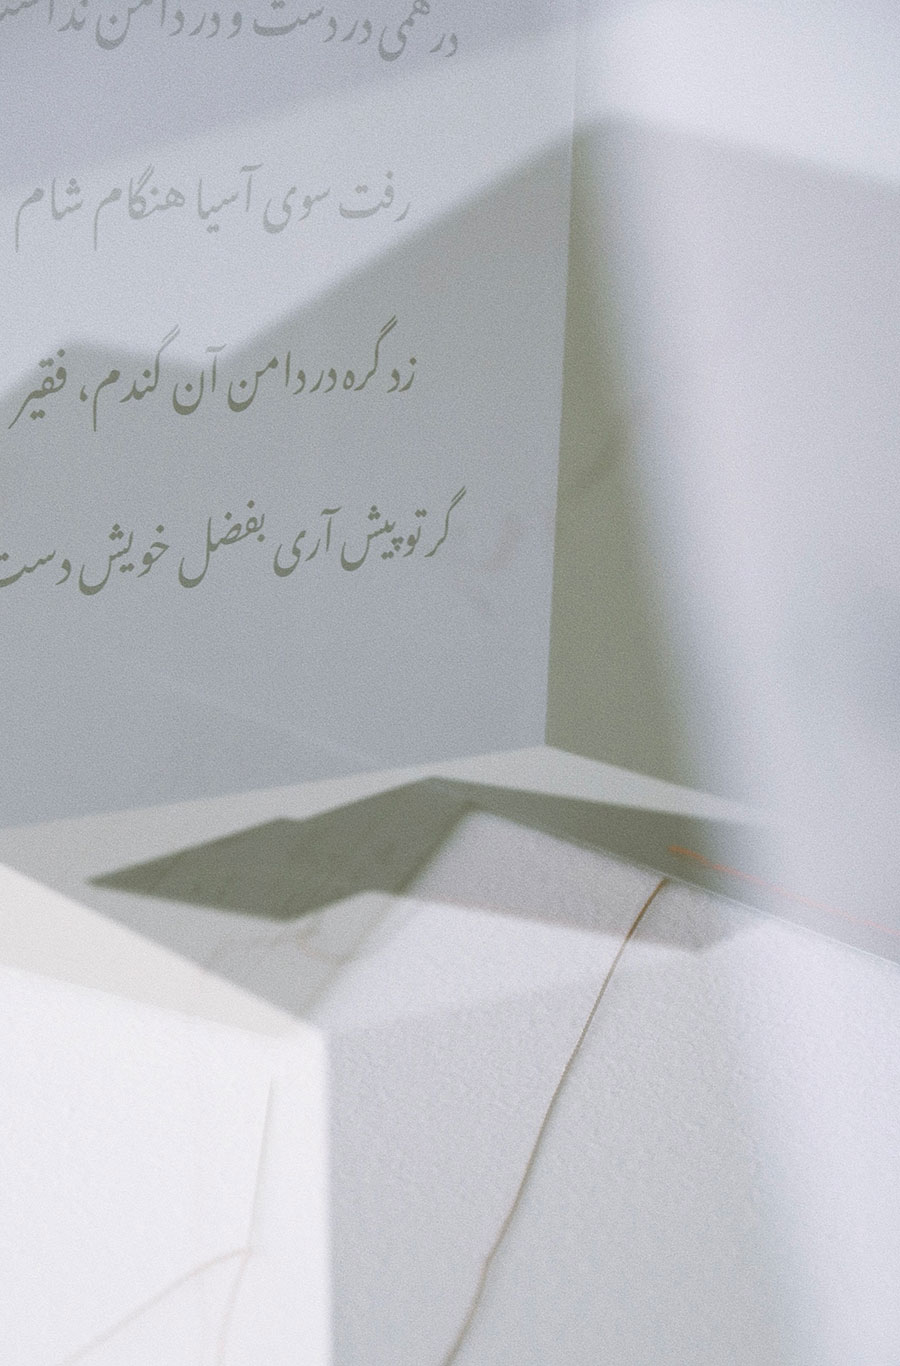 در همی در دست و در دامن نداشت
رفت سوی آسیا هنگام شام
زد گره در دامن آن گندم، فقیر
گر تو پیش آری بفضل خویش دست